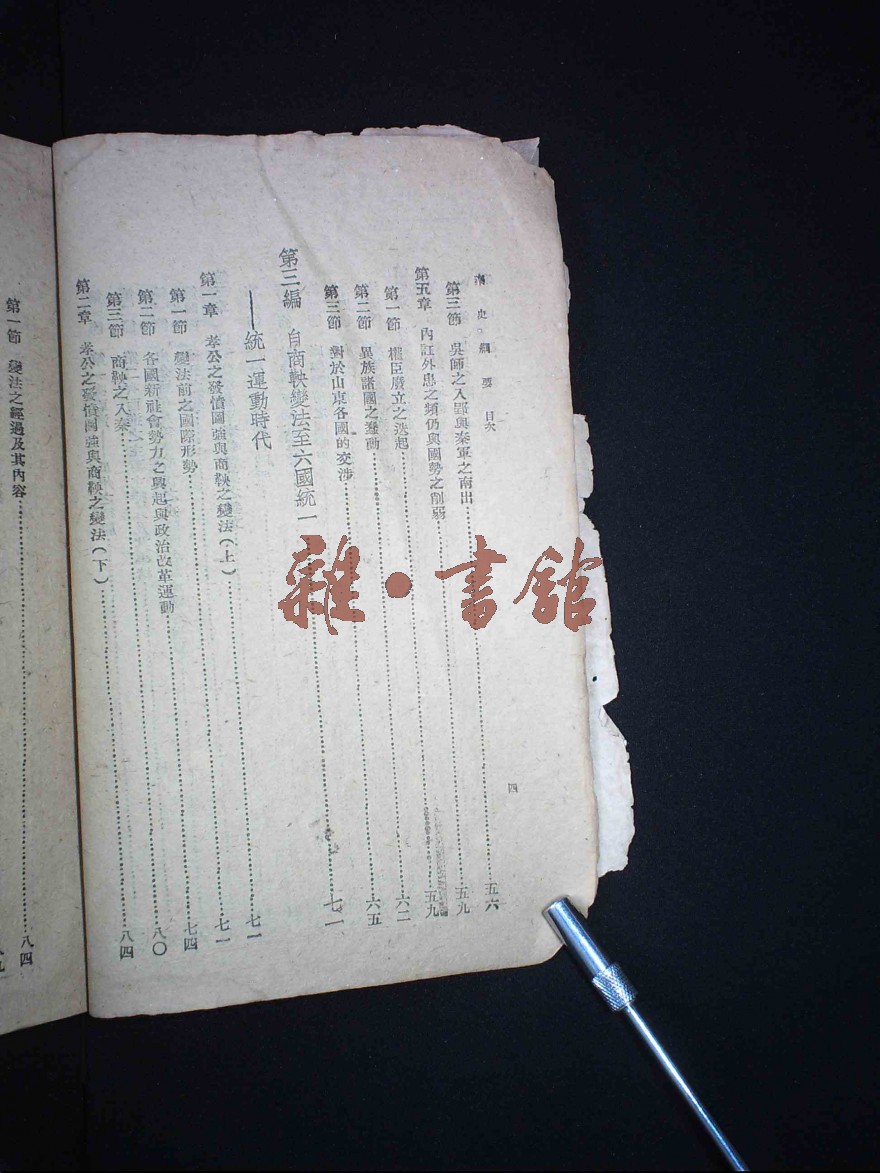 秦史綱要 目次
四
第三節 吳師之入郢與秦軍之南出……五六
第五章 內訌外患之頻仍與國勢之削弱……五九
第一節 權臣廢立之迭起……五九
第二節 異族諸國之蠢動……六二
第三節 對於山東各國的交涉……六五
第三編 自商鞅變法至六國統一……七一
——統一運動時代
第一章 孝公之發憤圖強與商鞅之變法(上)……七一
第一節 變法前之國際形勢……七一
第二節 各國新社會勢力之興起與政治改革運動……七四
第三節 商鞅之入秦……八〇
第二章 孝公之發憤圖強與商鞅之變法(下)……八四
第一節 變法之經過及其內容……八四
雜·書館